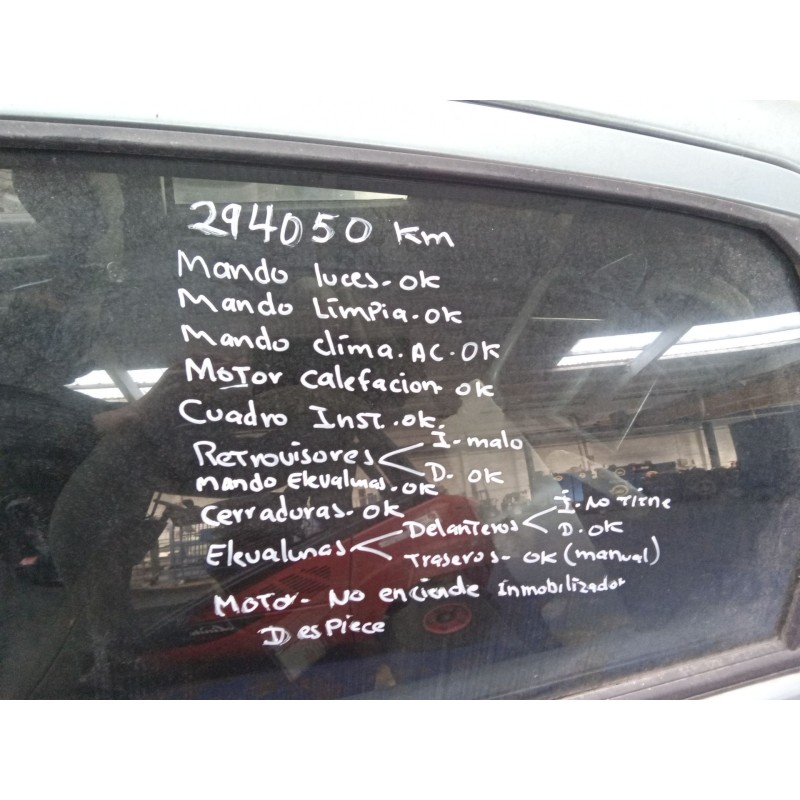 294050 Km
Mando luces-OK
Mando Limpia-OK
Mando clima.AC-OK
Motor Calefacion OK
Cuadro Inst.ok.
Retrovisores I-malo
D- OK
Mando Elevalunas-OK
Cerraduras-OK
Elevalunas Delanteros I-No Tiene
D-OK
Traseros- OK (manual)
Motor- No enciende Inmobilizador
Despiece